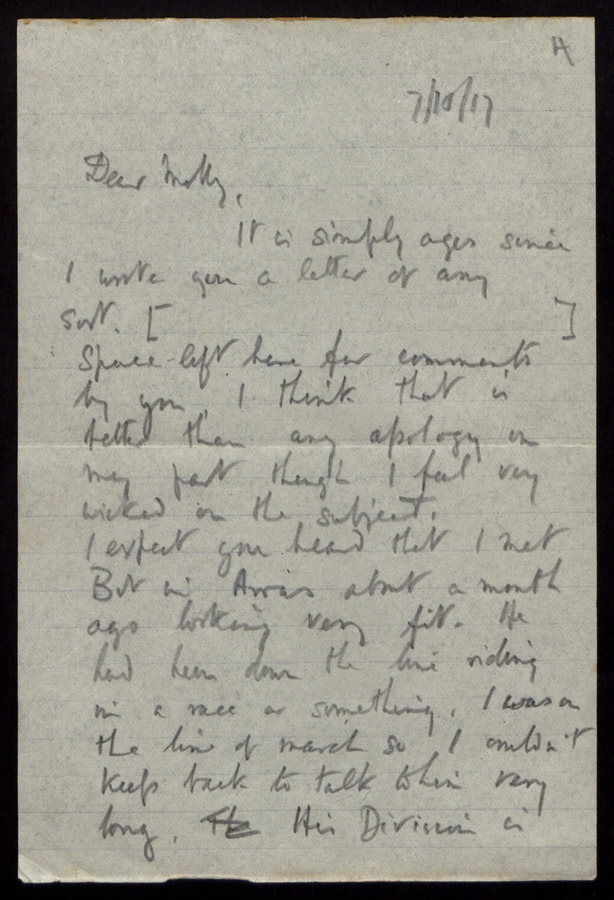 A
7/10/17
Dear Molly,
It is simply ages since
I wrote you a letter of any
sort. [ ]
Space left here for comments
by you, I think that is
better than any apology on
my part though I feel very
wicked on the subject.
I expect you heard that I met
in Arras about a month
ago looking very fit. He
had been down the line riding
in a race or something. I was on
the line of march so I couldn't
keep back to talk to him very
long. His Division is